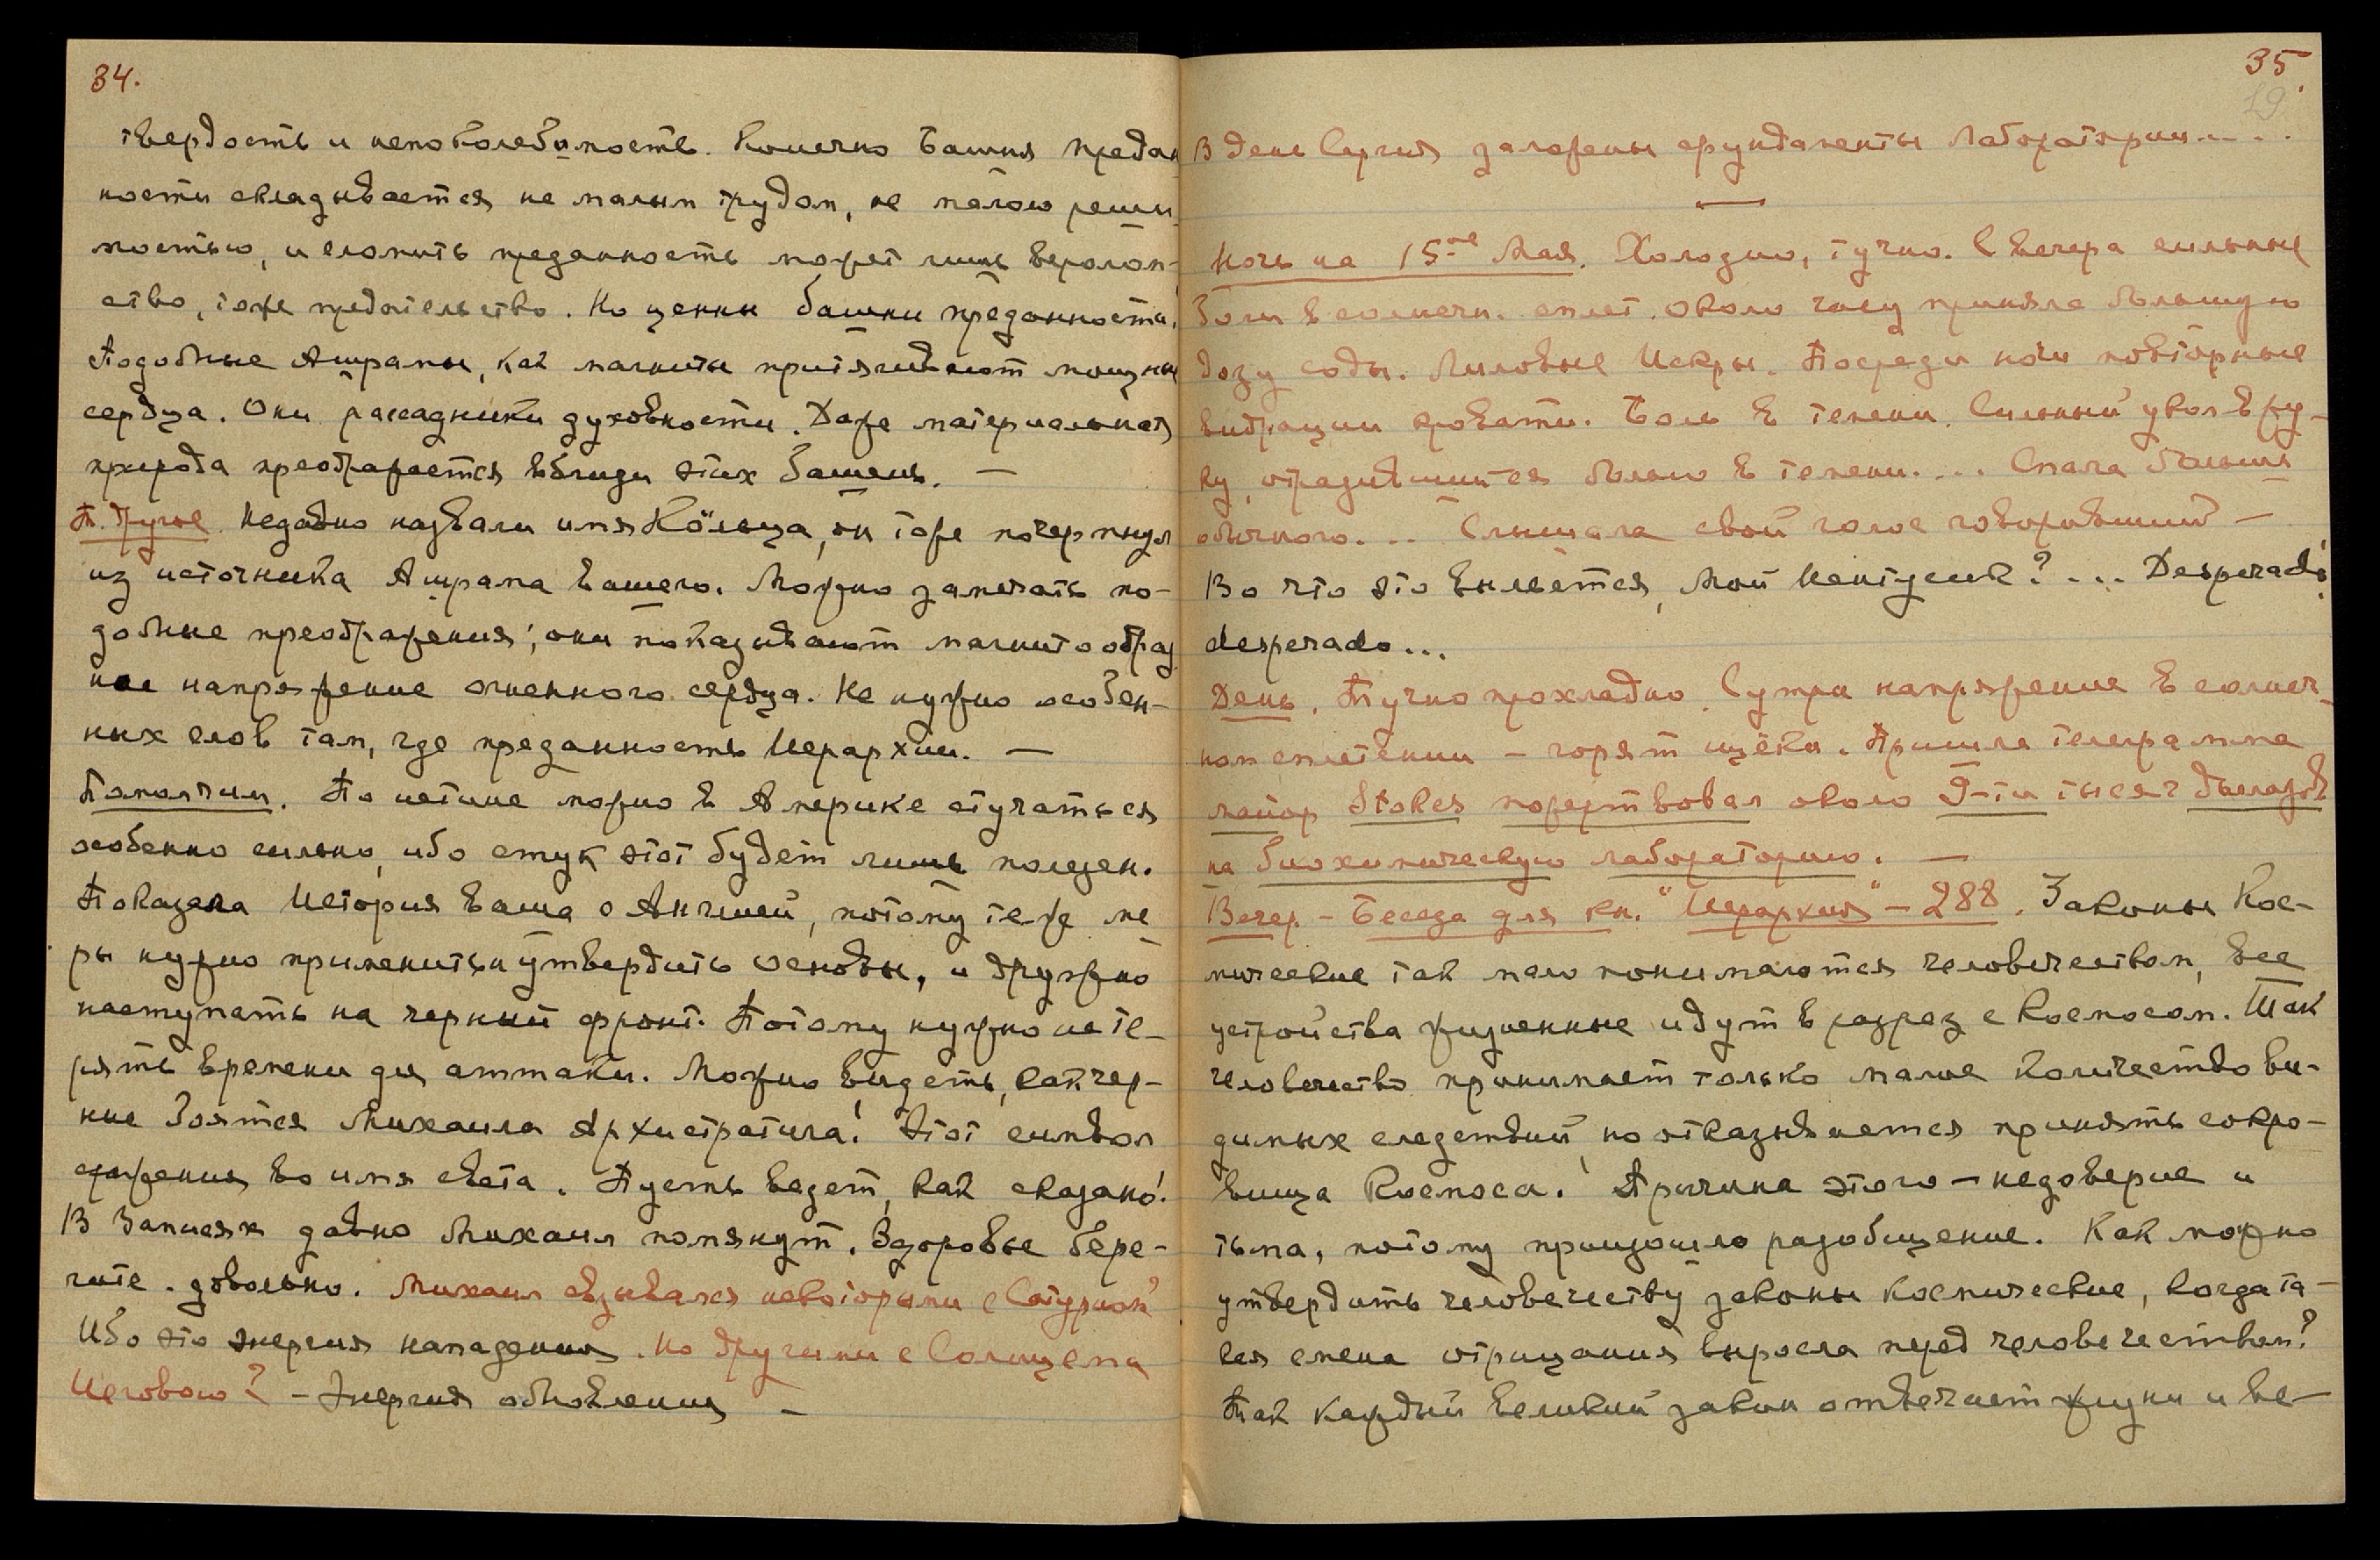 34.
твердость и непоколебимость. Конечно башня предан
ности складывается не малым трудом, не малою реши
мостью, и сломить преданность может лишь веролом-
ство, тоже предательство. Но ценны башни преданности.
Подобные Ашрамы, как магниты притягивают мощные
сердца. Они рассадники духовности. Даже материальная
природа преображается вблизи этих башен. —
П. Другое Недавно назвали имя Кольца, он тоже почерпнул
из источника Ашрама вашего. Можно замечать по-
добные преображения; они показывают магнитообраз
ное напряжение огненного сердца. Не нужно особен-
ных слов там, где преданность Иерархии. —
Помолчим. По истине можно в Америке стучаться
особенно сильно, ибо стук этот будет лишь полезен.
Показала История ваша с Англией, потому теже ме
ры нужно применить и утвердить основы, и дружно
наступать на черный фронт. Потому нужно не те-
рять времени для аттаки. Можно видеть, как чер-
ные боятся Михаила Архистратига! Этот символ
сражения во имя света. Пусть ведет, как сказано!
В Записях давно Михаил помянут. Здоровье бере-
гите. довольно. Михаил связывался некоторыми с Сатурном?
Ибо это энергия нападения. Но другими с Солнцем а
Иегова? — Энергия обновления —
35
19
В день Сергия заложены фундаменты Лаборатории....
—
Ночь на 15ое Мая. Холодно, тучно. С вечера сильные
боли в солнечн. сплет. около часу приняла большую
дозу соды. Лиловые Искры. Посреди ночи повторные
вибрации кровати. Боль в темени. Сильный укол в ру-
ку, отразившийся болью в темени.... Спала больше
обычного... Слышала свой голос говоривший —
Во что это выльется, Мой                ?... Desperado!
desperado...
День. Тучно прохладно. С утра напряжение в солнеч-
ном сплетении — горят щёки. Пришла телеграмма
майор Stokes пожертвовал около 9-ти тысяч долларов
на биохимическую лабораторию. —
Вечер. — Беседа для кн. "Иерархия" — 288. Законы Кос-
мические так мало понимаются человечеством, все
устройства жизненные идут в разрез с Космосом. Так
человечество принимает только малое количество ви-
димых следствий, но отказывается принять сокро-
вища Космоса. Причина этого — недоверие и
тьма, потому произошло разобщение. Как можно
утвердить человечеству законы космические, когда та-
кая стена отрицания выросла перед человечеством?
Так каждый великий закон отвечает жизни и ве-